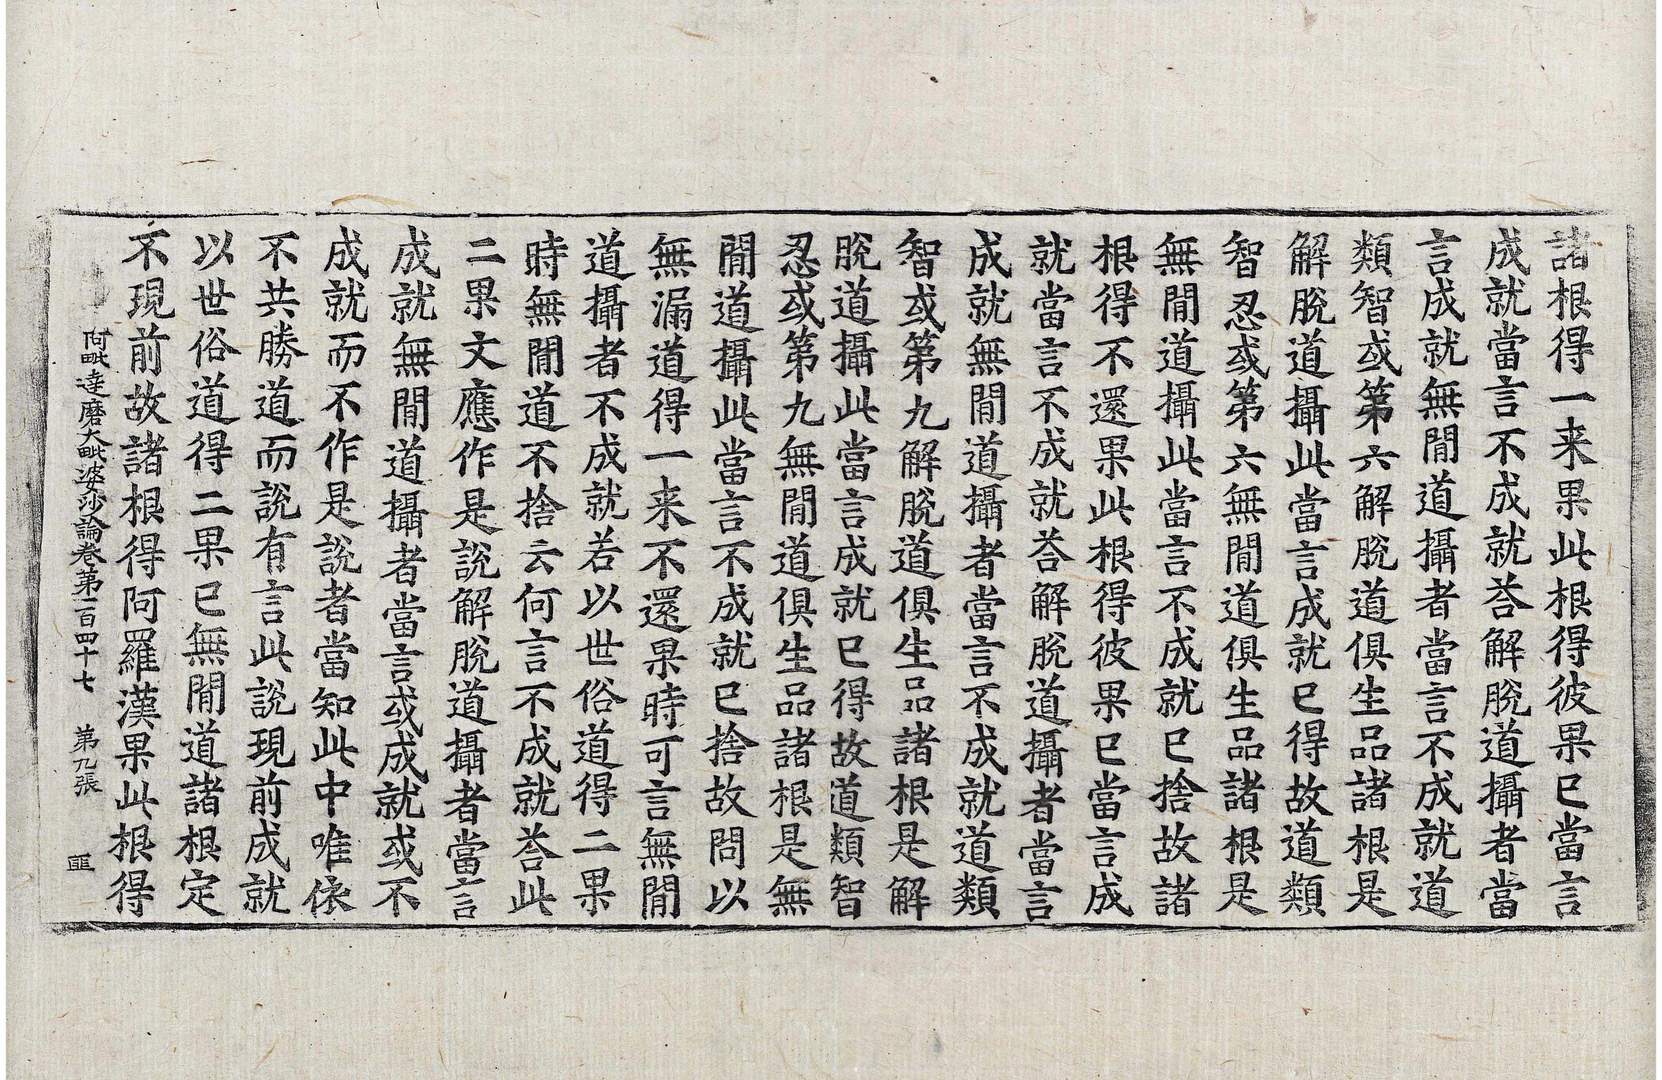 諸根得一来果此根得彼果已當言
成就當言不成就荅解脫道攝者當
言成就無閒道攝者當言不成就道
類智或第六解脫道俱生品諸根是
解脫道攝此當言成就已得故道類
智忍或第六無閒道俱生品諸根是
無閒道攝此當言不成就已捨故諸
根得不還果此根得彼果已當言成
就當言不成就荅解脫道攝者當言
成就無閒道攝者當言不成就道類
智或第九解脫道俱生品諸根是解
脫道攝此當言成就已得故道類智
忍或第九無閒道俱生品諸根是無
閒道攝此當言不成就已捨故問以
無漏道得一来不還果時可言無閒
道攝者不成就若以世俗道得二果
時無閒道不捨云何言不成就荅此
二果文應作是說解脫道攝者當言
成就無閒道攝者當言或成就或不
成就而不作是說者當知此中唯依
不共勝道而說有言此說現前成就
以世俗道得二果已無閒道諸根定
不現前故諸根得阿羅漢果此根得
阿毗達磨大毗婆沙論卷第一百四十七 第九張 匪